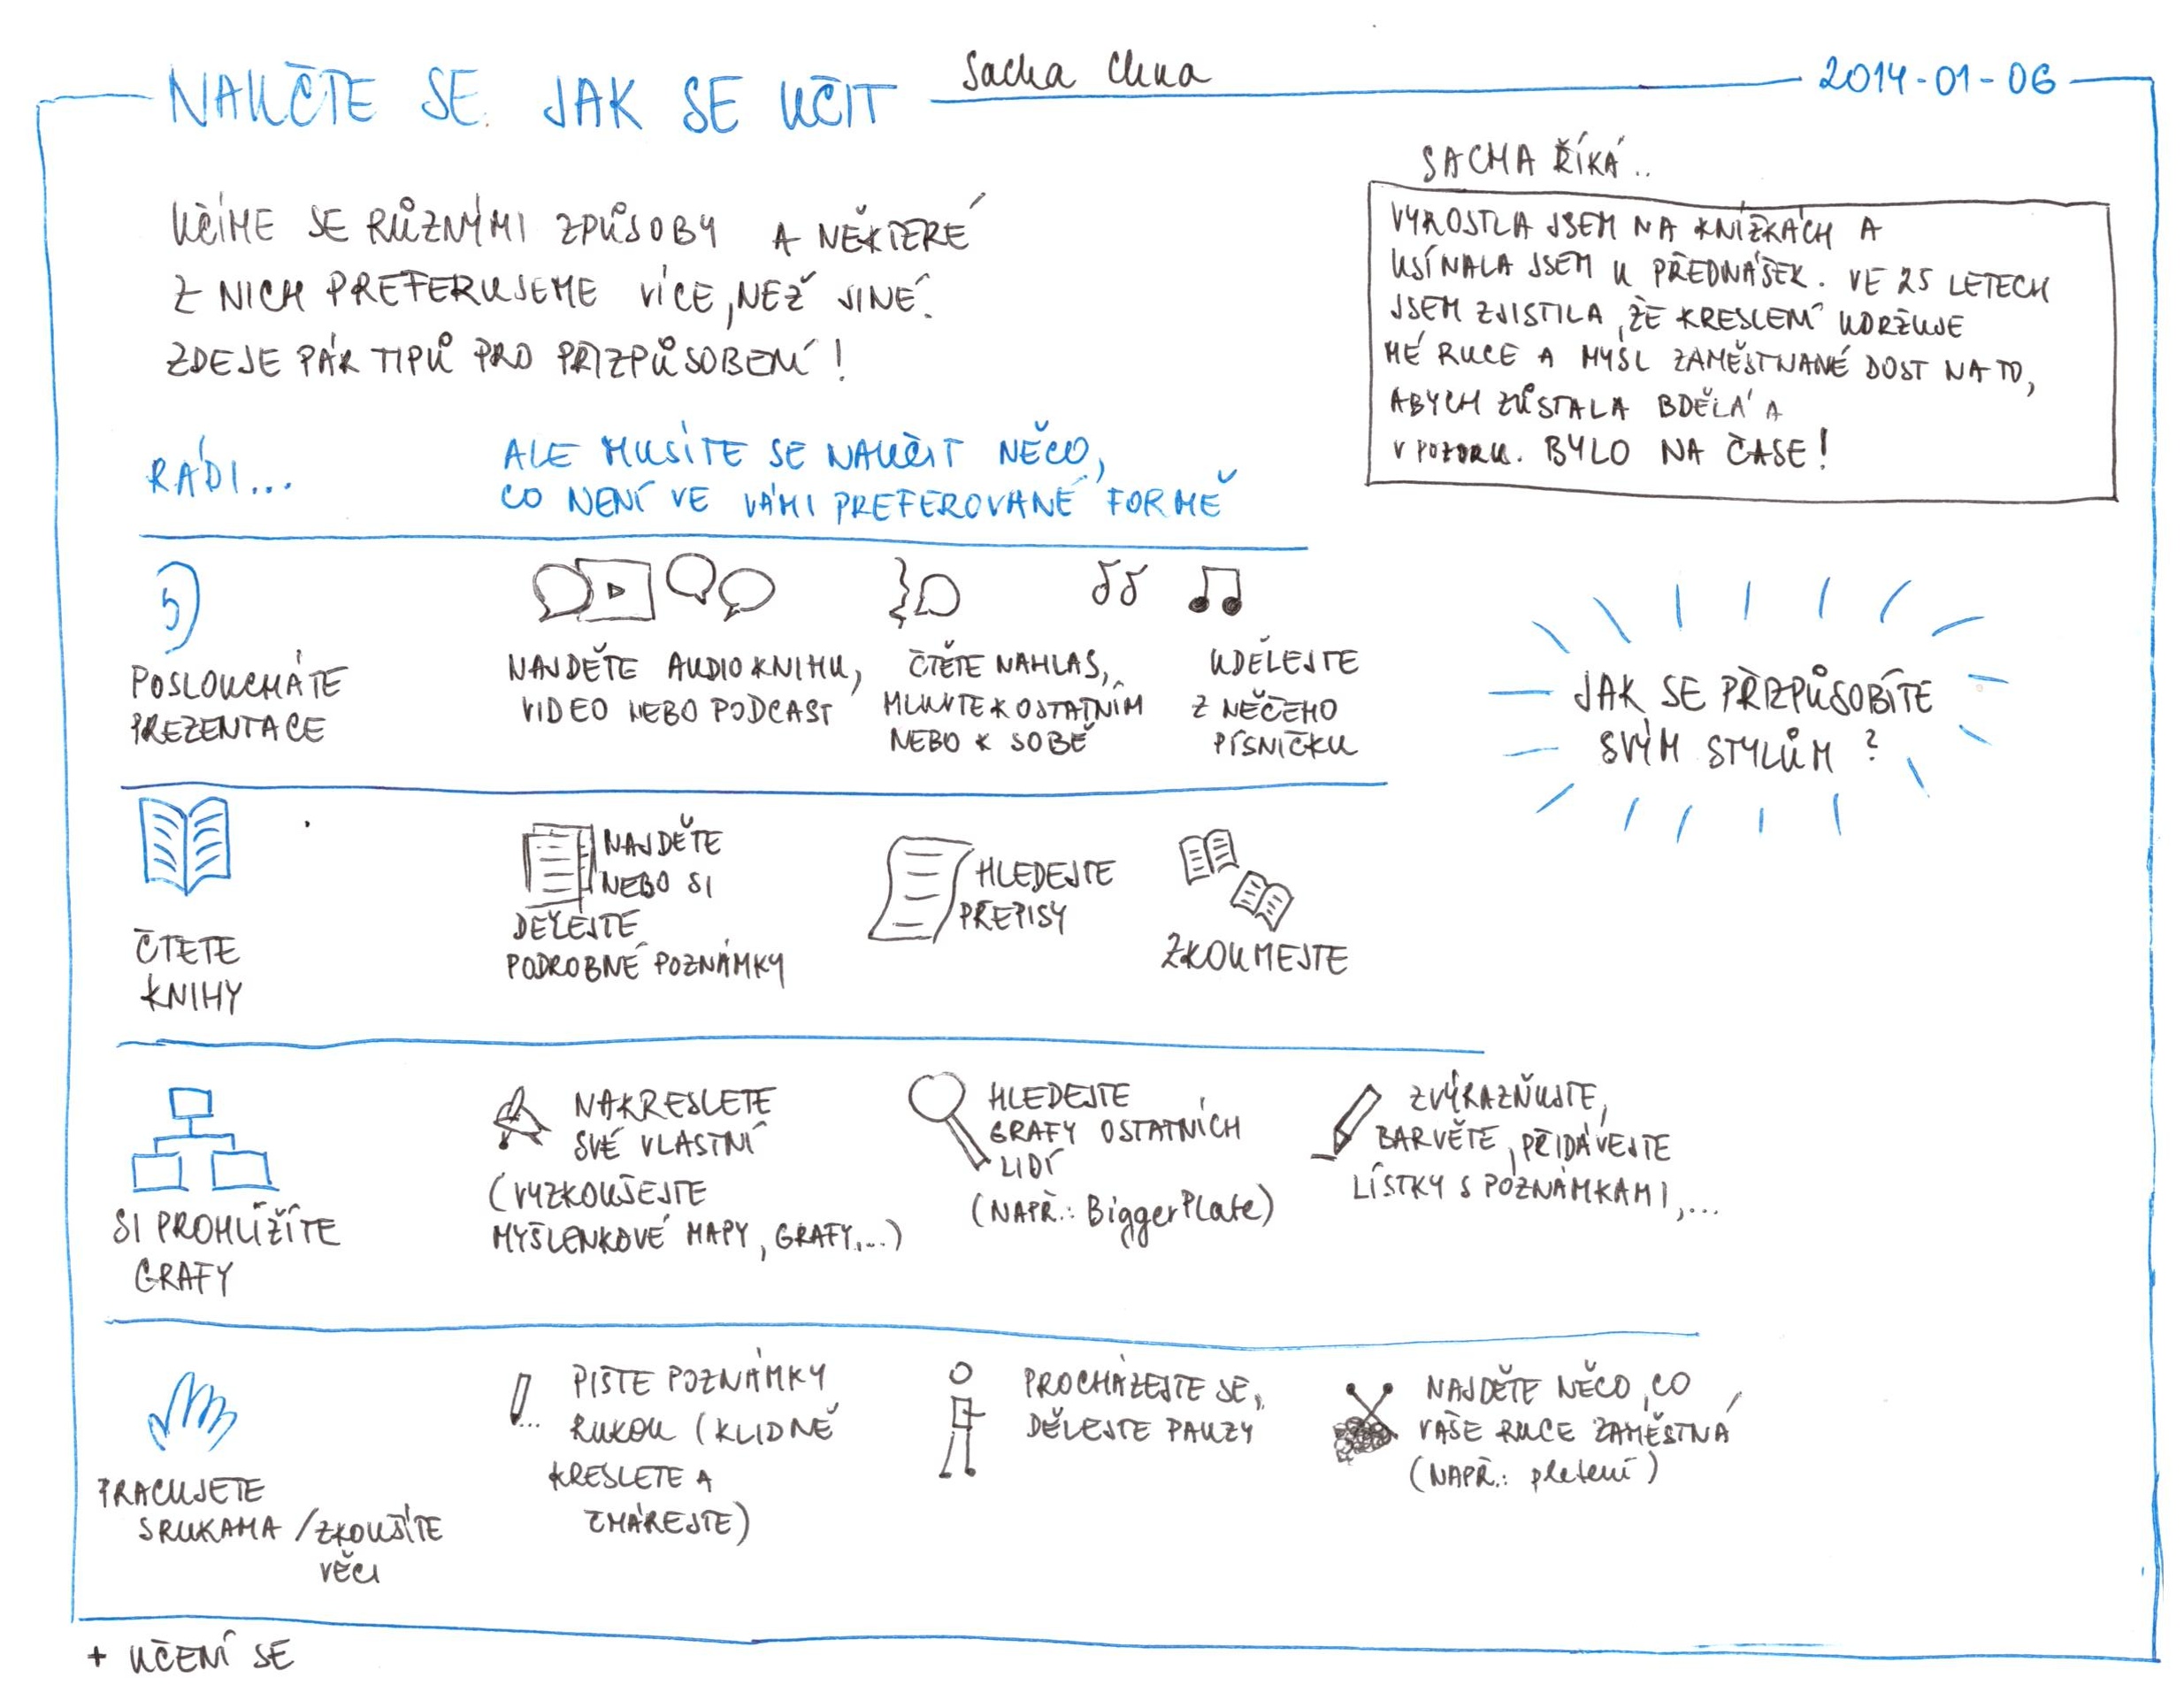 NAUČTE SE JAK SE UČIT
Sacha Chua
2014-01-06
UČÍME SE RŮZNÝMI ZPŮSOBY A NĚKTERÉ
Z NICH PREFERUJEME VÍCE, NEŽ JINÉ.
ZDE JE PÁR TIPŮ PRO PŘIZPŮSOBENÍ!
SACHA ŘÍKÁ..
VYROSTLA JSEM NA KNÍŽKÁCH A
USÍNALA JSEM U PŘEDNÁŠEK. VE 25 LETECH
JSEM ZJISTILA, ŽE KRESLENÍ UDRŽUJE
MÉ RUCE A MYSL ZAMĚSTNANÉ DOST NA TO,
ABYCH ZŮSTALA BDĚLÁ A
V POZORU. BYLO NA ČASE!
RÁDI...
ALE MUSÍTE SE NAUČIT NĚCO,
CO NENÍ VE VÁMI PREFEROVANÉ FORMĚ
POSLOUCHÁTE
PREZENTACE
NAJDĚTE AUDIOKNIHU,
VIDEO NEBO PODCAST
ČTĚTE NAHLAS,
MLUVTE K OSTATNÍM
NEBO K SOBĚ
UDĚLEJTE
Z NĚČEHO
PÍSNIČKU
JAK SE PŘIZPŮSOBÍTE
SVÝM STYLŮM ?
ČTETE
KNIHY
NAJDĚTE
NEBO SI
DĚLEJTE
PODROBNÉ POZNÁMKY
HLEDEJTE
PŘEPISY
ZKOUMEJTE
SI PROHLÍŽÍTE
GRAFY
NAKRESLETE
SVÉ VLASTNÍ
(VYZKOUŠEJTE
MYŠLENKOVÉ MAPY, GRAFY,...)
HLEDEJTE
GRAFY OSTATNÍCH
LIDÍ
(NAPŘ.: BiggerPlate)
ZVÝRAZŇUJTE,
BARVĚTE, PŘIDÁVEJTE
LÍSTKY S POZNÁMKAMI,...
PRACUJETE
S RUKAMA / ZKOUŠÍTE
VĚCI
PIŠTE POZNÁMKY
RUKOU (KLIDNĚ
KRESLETE A
ČMÁREJTE)
PROCHÁZEJTE SE,
DĚLEJTE PAUZY
NAJDĚTE NĚCO, CO
VAŠE RUCE ZAMĚSTNÁ
(NAPŘ.: pletení)
+ UČENÍ SE